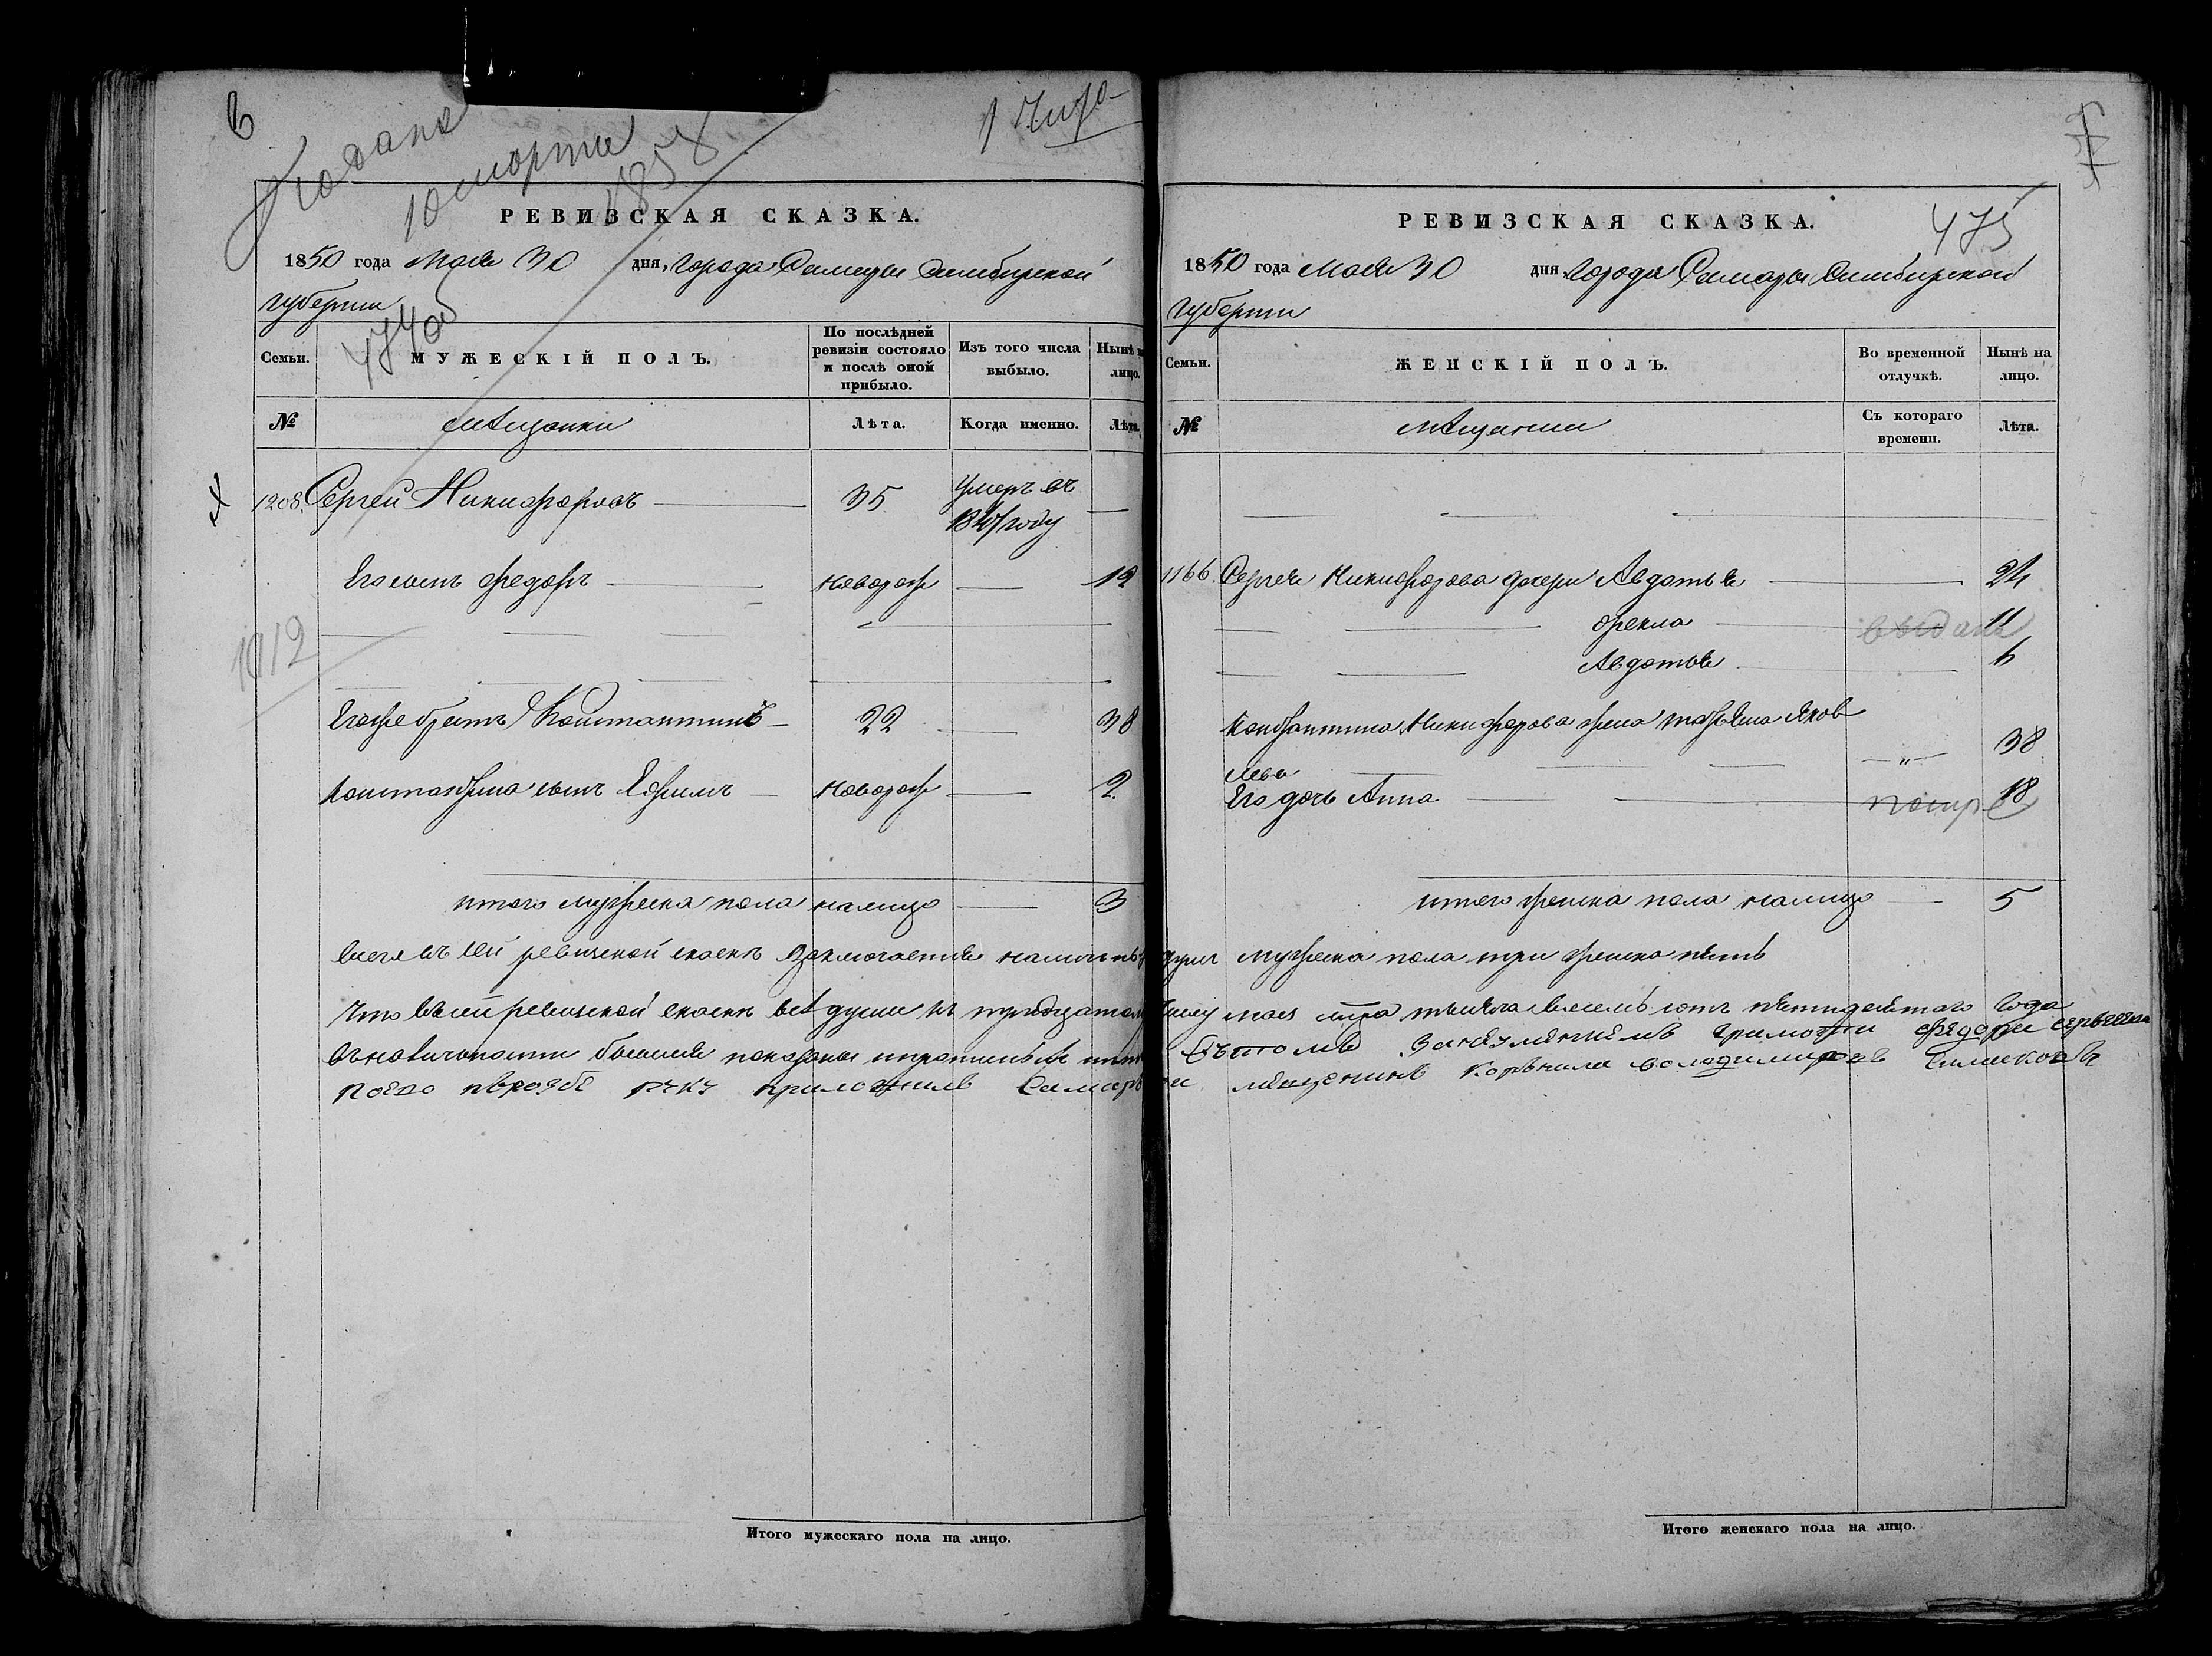 6
Подана
10 марта
1858
474 об
РЕВИЗСКАЯ СКАЗКА.
1850 года Мая 30 дня, Города Самары Симбирской
губернии
Семьи.
МУЖЕСКІЙ ПОЛЪ.
По послѣдней ревизіи состояло и послѣ оной прибыло.
Изъ того числа выбыло.
Нынѣ на лицо.
№
мѣщанки
Лѣта.
Когда именно.
Лѣта
1208. Сергей Никифоровъ 35 умеръ въ
году
Его сынъ Федоръ новорож 12
1012
Егоже братъ Константинъ 22 38
Константина сынъ Ефимъ новорож 2
итого мужеска пола налицо 3
РЕВИЗСКАЯ СКАЗКА.
475
1850 года Мая 30 дня Города Самары Симбирской
губернии
Семьи.
ЖЕНСКІЙ ПОЛЪ.
Во временной отлучкѣ.
Нынѣ на лицо.
№
мѣщанки
Съ котораго времени.
Лѣта.
1166. Сергея Никифорова дочери Авдотья 24
Фекла выдана 11
Авдотья 6
Константина Никифорова жена Татьяна Яков
лева „ 38
Его дочь Анна 18
итого женска пола налицо 5
Всего въ сей ревизской сказкѣ заключается налицо душъ мужеска пола три женска пять
Что въ сей ревизской сказкѣ всѣ души къ тридцатому числу мая тысяча восемь сотъ пятидесятого года
въ наличности бывшие показаны
за неуменниемъ грамоти Федора
поево прозбе руку приложилъ мѣщенинъ Корънила володимировъ
Итого мужескаго пола на лицо.
Итого женскаго пола на лицо.